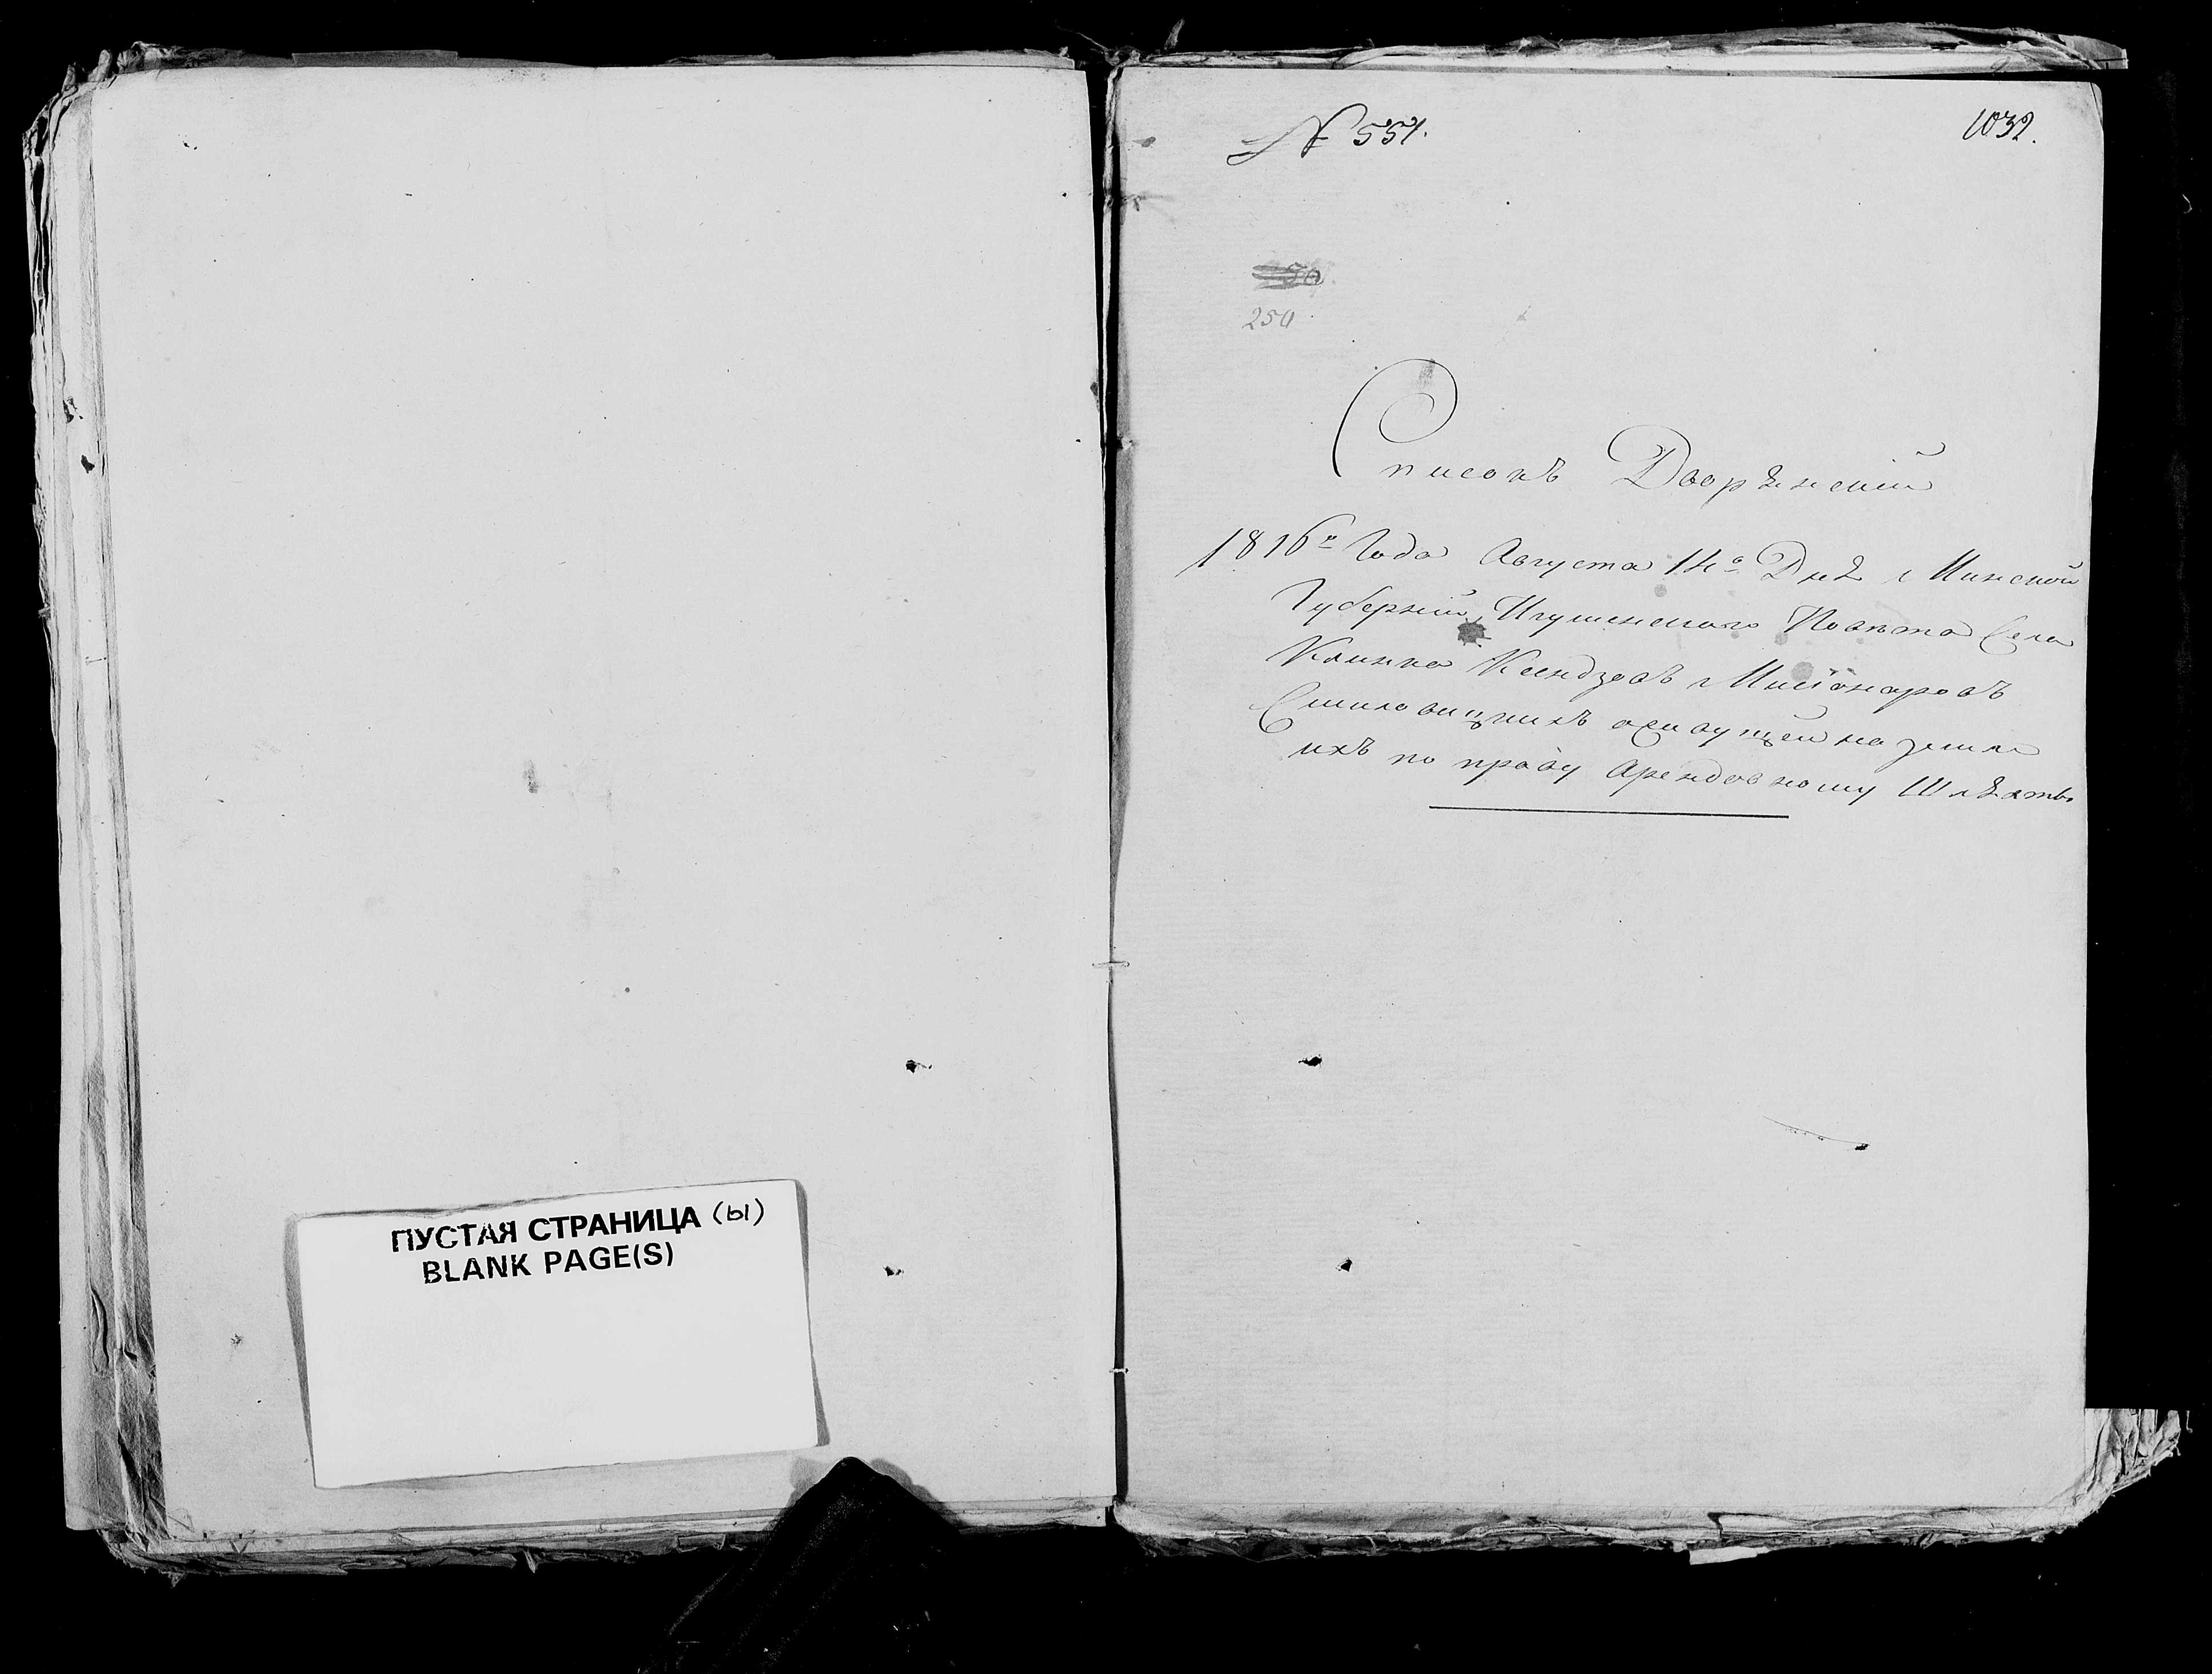 ПУСТАЯ СТРАНИЦА (ы)
BLANK PAGE(S)
№ 551.
1032.
250
Списокъ Дворянскій
1816го Года Августа 14го Дня Минской
Губерніи, Игуменского Повѣта Села
Клинка Ксендзовъ Мисіонаровъ
Смиловицкихъ живущей на земле
ихъ по праву Арендовному Шляхты